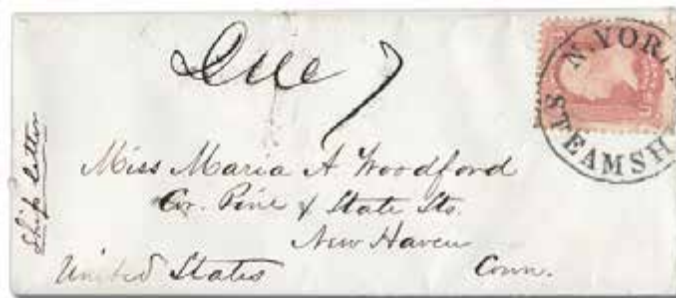 Due 7
N. YORK
STEAMSH
Ship letter
Miss Maria A Woodford
Cor. Pine & State Sts.
New Haven
United States Conn.